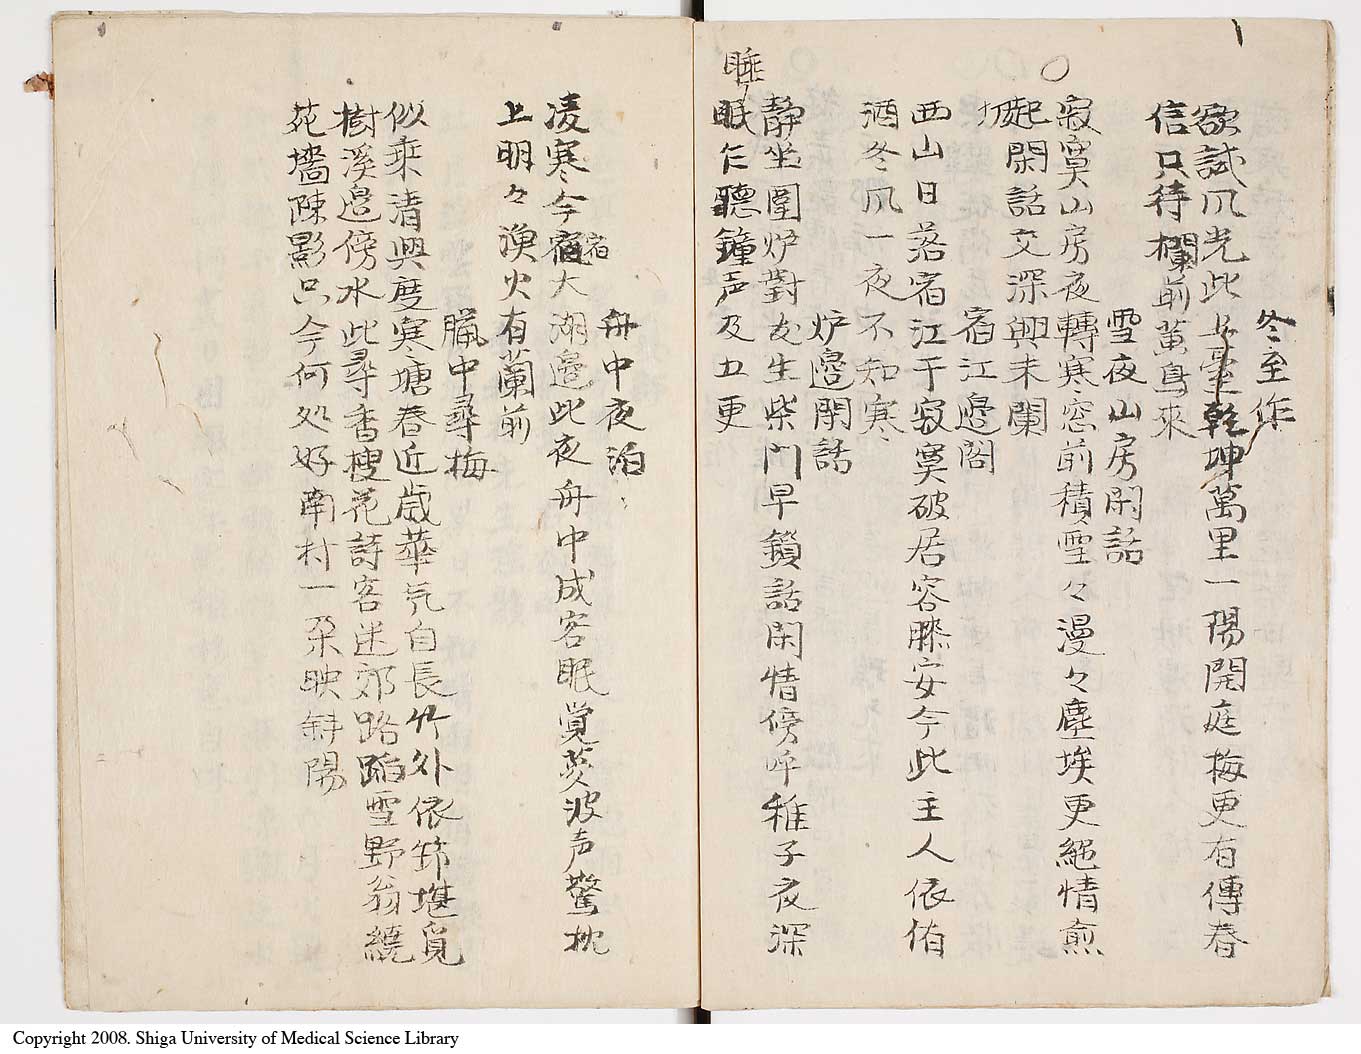 冬至作
欲試風光此 臺乾坤萬里一陽開庭梅更有傳春
信只待欄前萬鳥來
雪夜山房閑話
寂寞山房夜轉寒窓前積雪々漫々塵埃更絕情愈
切起閑話文深興未闌
宿江邉閣
西山日落宿江干寂寞破居容膝安今此主人依侑
酒冬風一夜不知寒
炉邉閑話
静坐圍炉對友生柴門早鎖話閑情傍呼稚子夜深
睡
眠乍聽鐘声及五更
舟中夜泊
凌寒今宿大湖邉此夜舟中成客眠覚莫波声驚枕
宿
上明々漁火有蘭前
臘中尋梅
似乘清興度寒塘春近歳華気自長竹外依節堪覓
樹溪邉傍水此尋香榎花詩客迷郊路踏雪野翁繞
苑墻踈影只今何処好南村一朶映斜陽
Copyright 2008. Shiga University of Medical Science Library